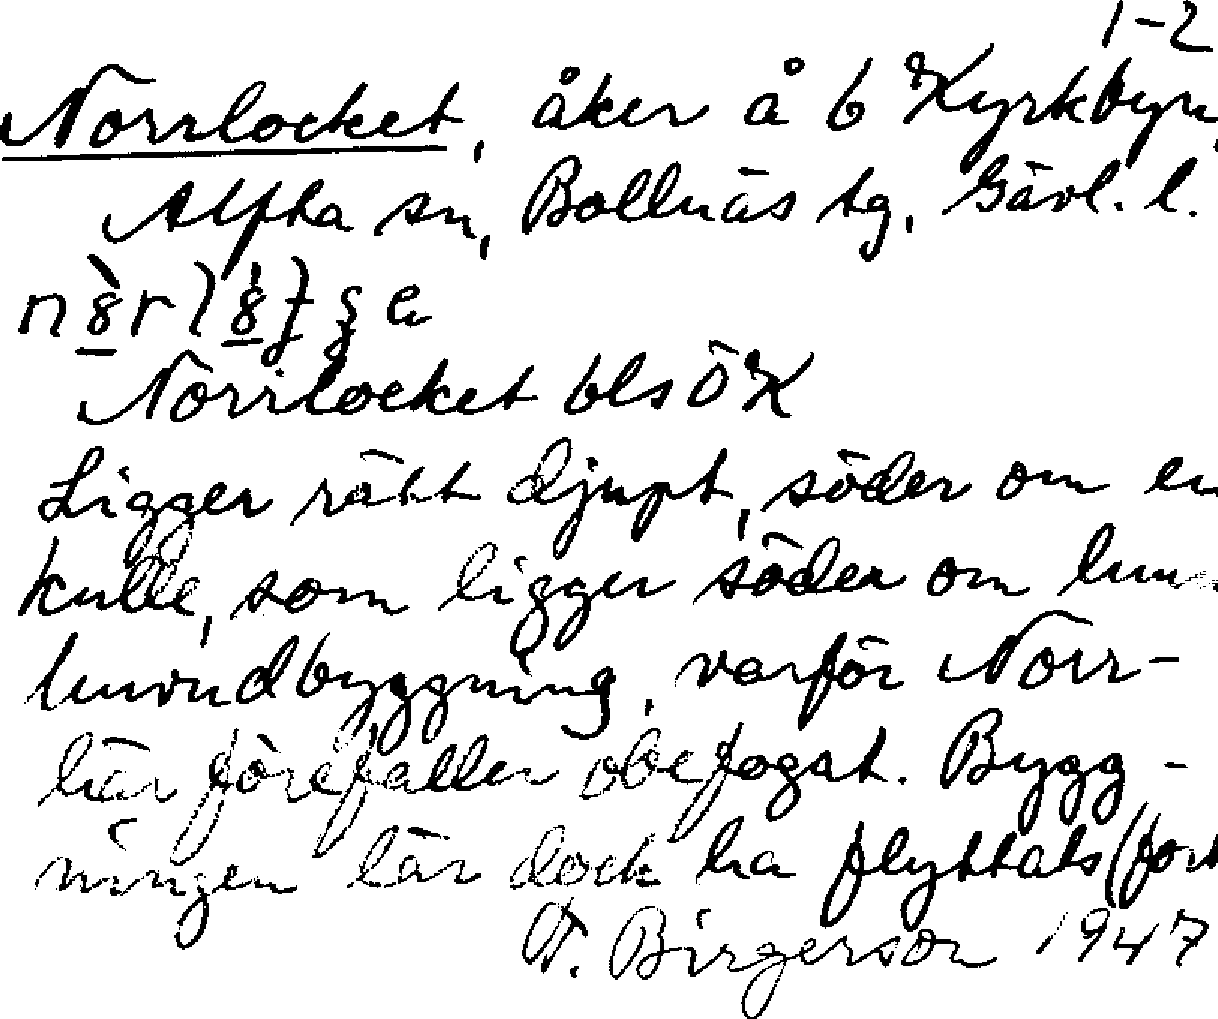 1-2
Norrlocket, åker å 6 Kyrkbyn,
Alfta sn, Bollnäs tg, Gävl. l.
Norrlocket bls ÖK
Ligger rätt djupt, söder om en
kulle, som ligger söder om
huvudbyggning, varför Norr-
här förefaller obefogat. Bygg-
ningen lär dock ha flyttats (fort
Birgerson 1947